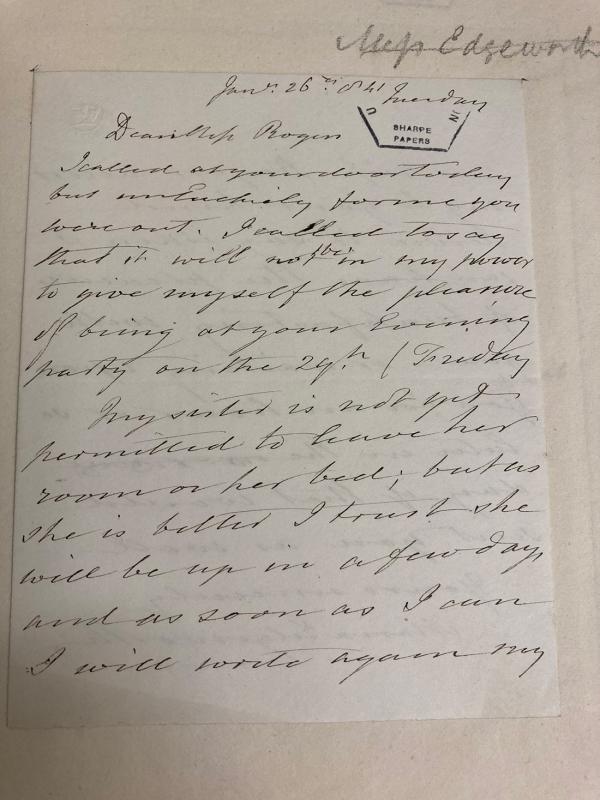 Miss Edgeworth
Jany. 26th 1841 Tuesday
U IN
SHARPE
PAPERS
Dear Miss Rogers
I called at your door today
but unluckily for me you
were out. I called to say
that it will not be in my power
to give myself the pleasure
of being at your Evening
party on the 29th. (Friday
My sister is not yet
permitted to leave her
room or her bed; but as
she is better I trust she
will be up in a few days
and as soon as I can
I will write again my